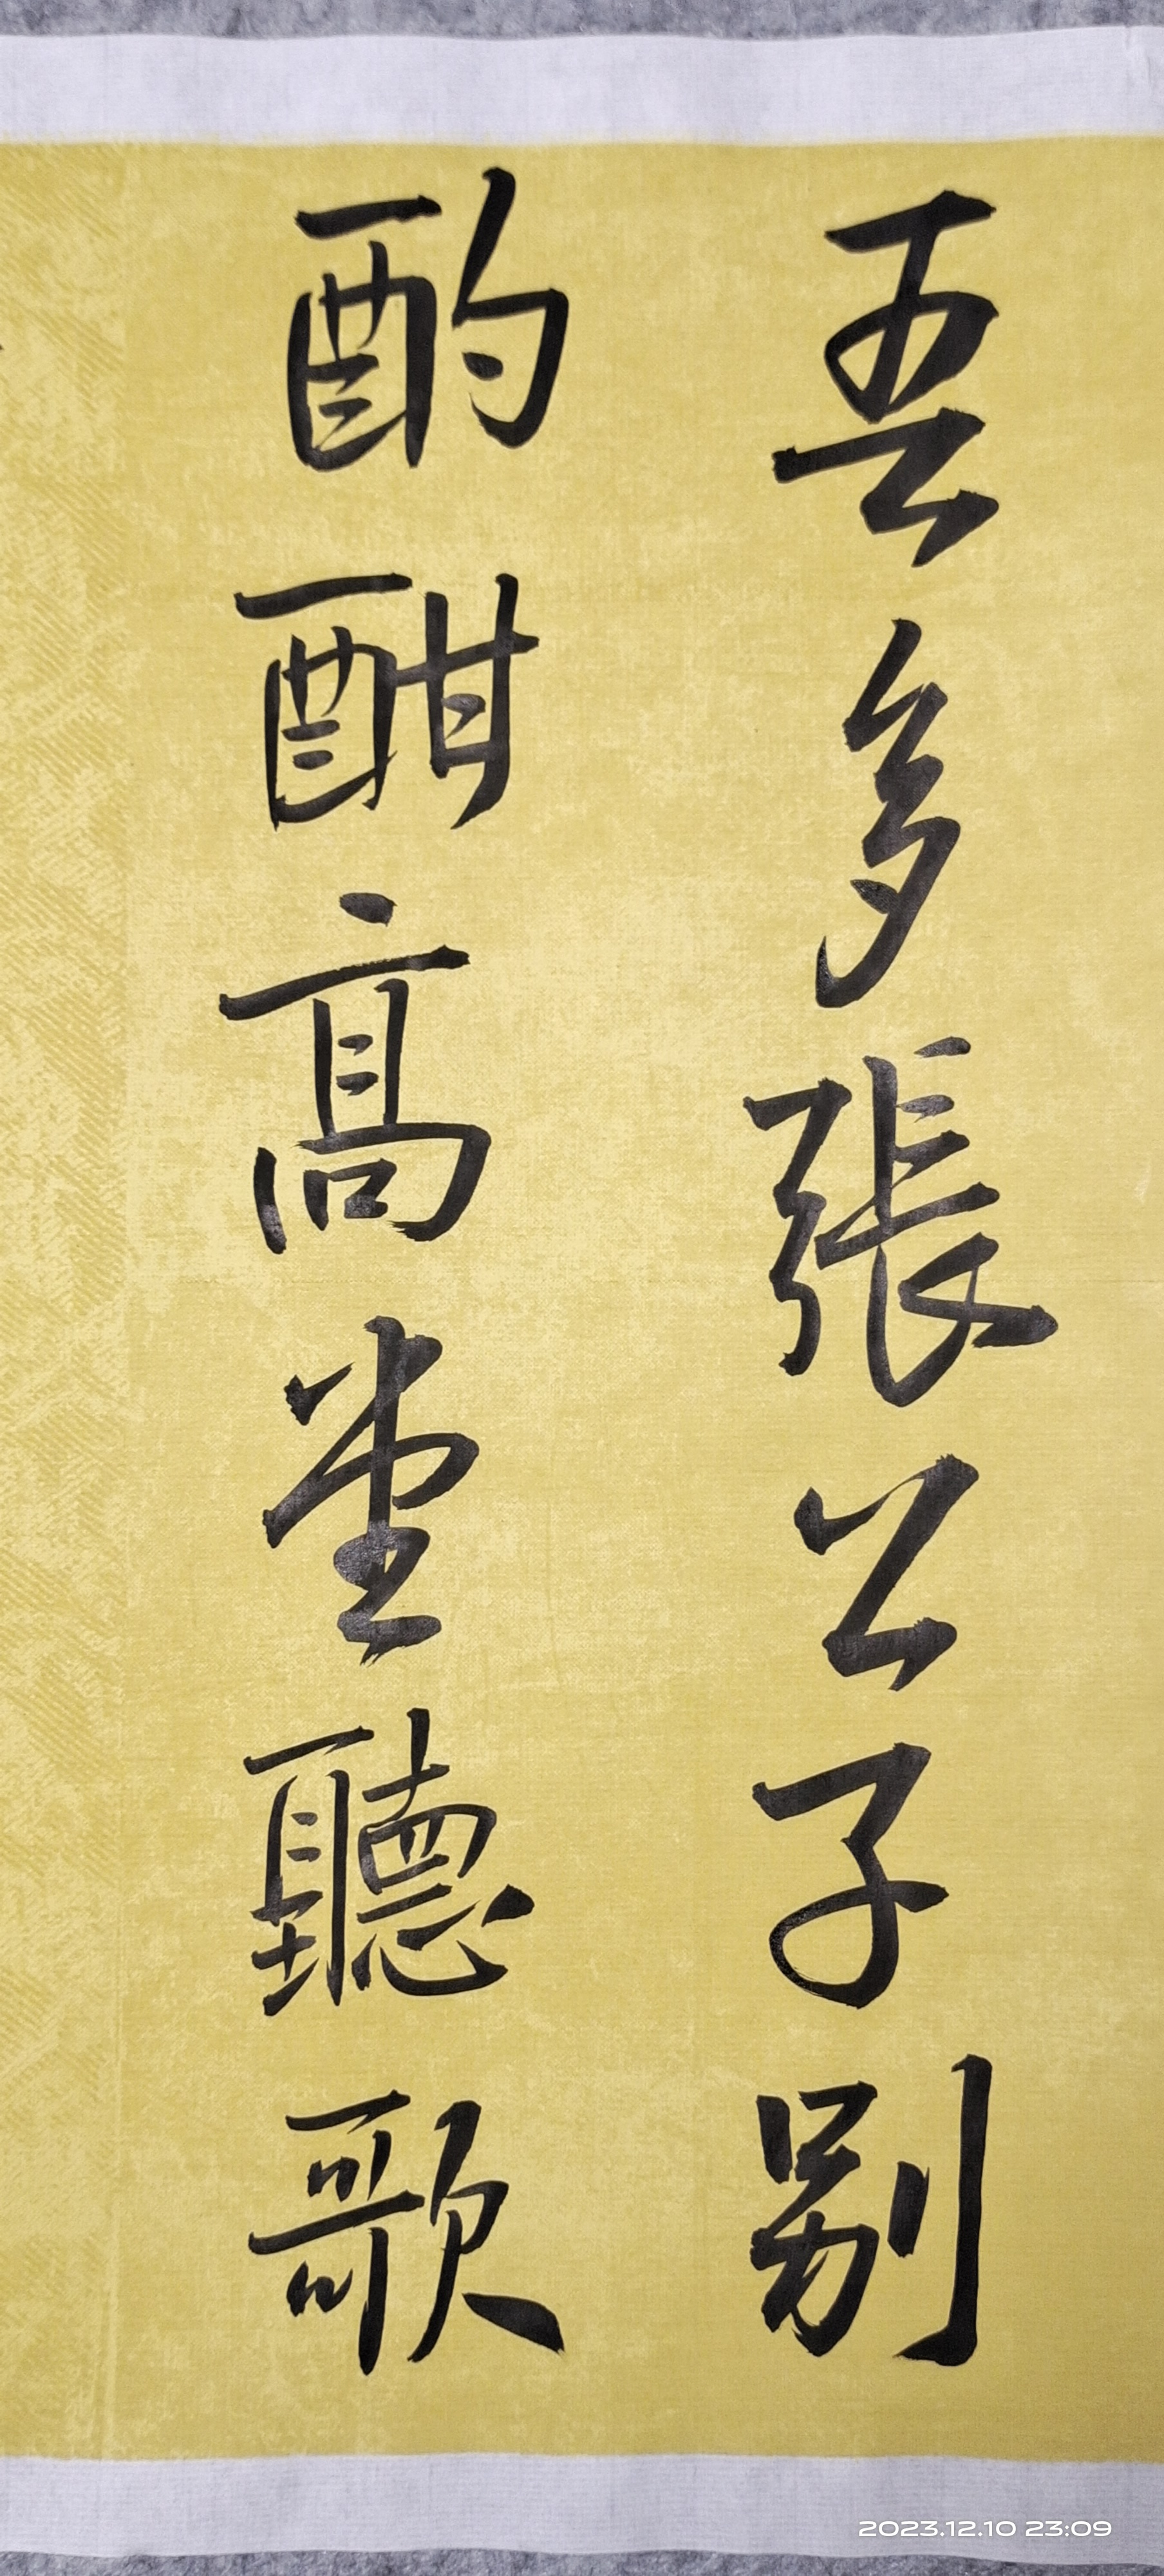 吾多張公子別
酌酣高堂聽歌
2023.12.10 23:09